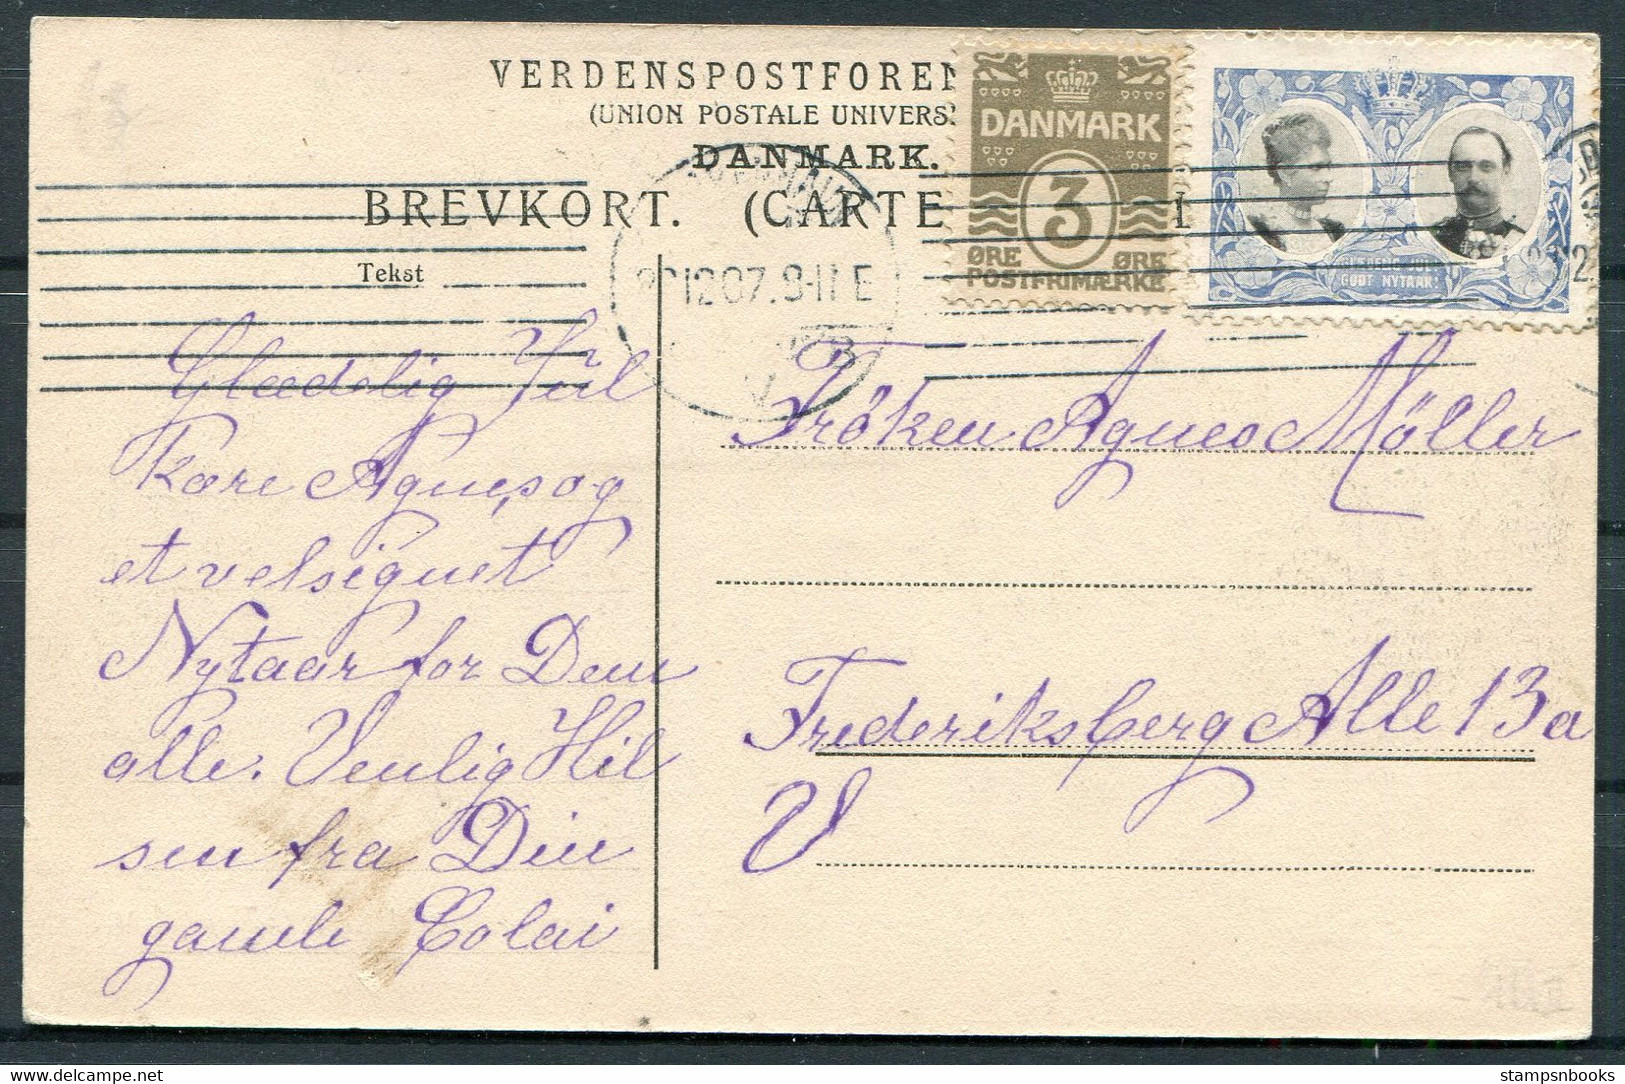 VERDENSPOSTFOREN
(UNION POSTALE UNIVERS
DANMARK.
BREVKORT. (CARTE
Tekst
DANMARK
3
ØRE ØRE
POSTFRIMÆRKE
GLÆDELIG JUL
GODT NYTAAR!
12 07. 9-11 E
Glædelig Jul
Kære Agnes, og
et velsignet
Nytaar for Dem
alle. Venlig Hil
sen fra Din
gamle
Frøken Agnes Møller
Frederiksberg Alle 13a
V
stampsnbooks